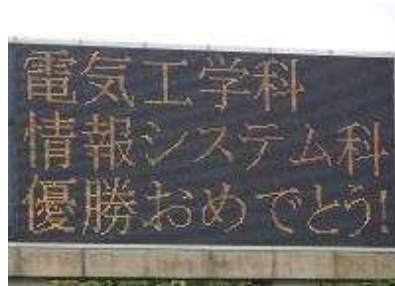 電気工学科
情報システム科
優勝おめでとう!